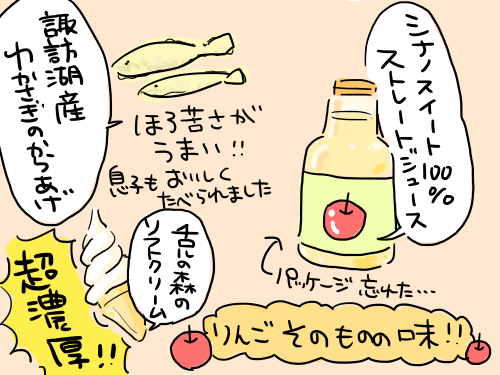 諏訪湖産
わかさぎのからあげ
ほろ苦さが
うまい!!
息子もおいしく
たべられました
シナノスイート100%
ストレートジュース
パッケージ忘れた…
りんごそのものの味!!
の森の
ソフトクリーム
超濃厚!!